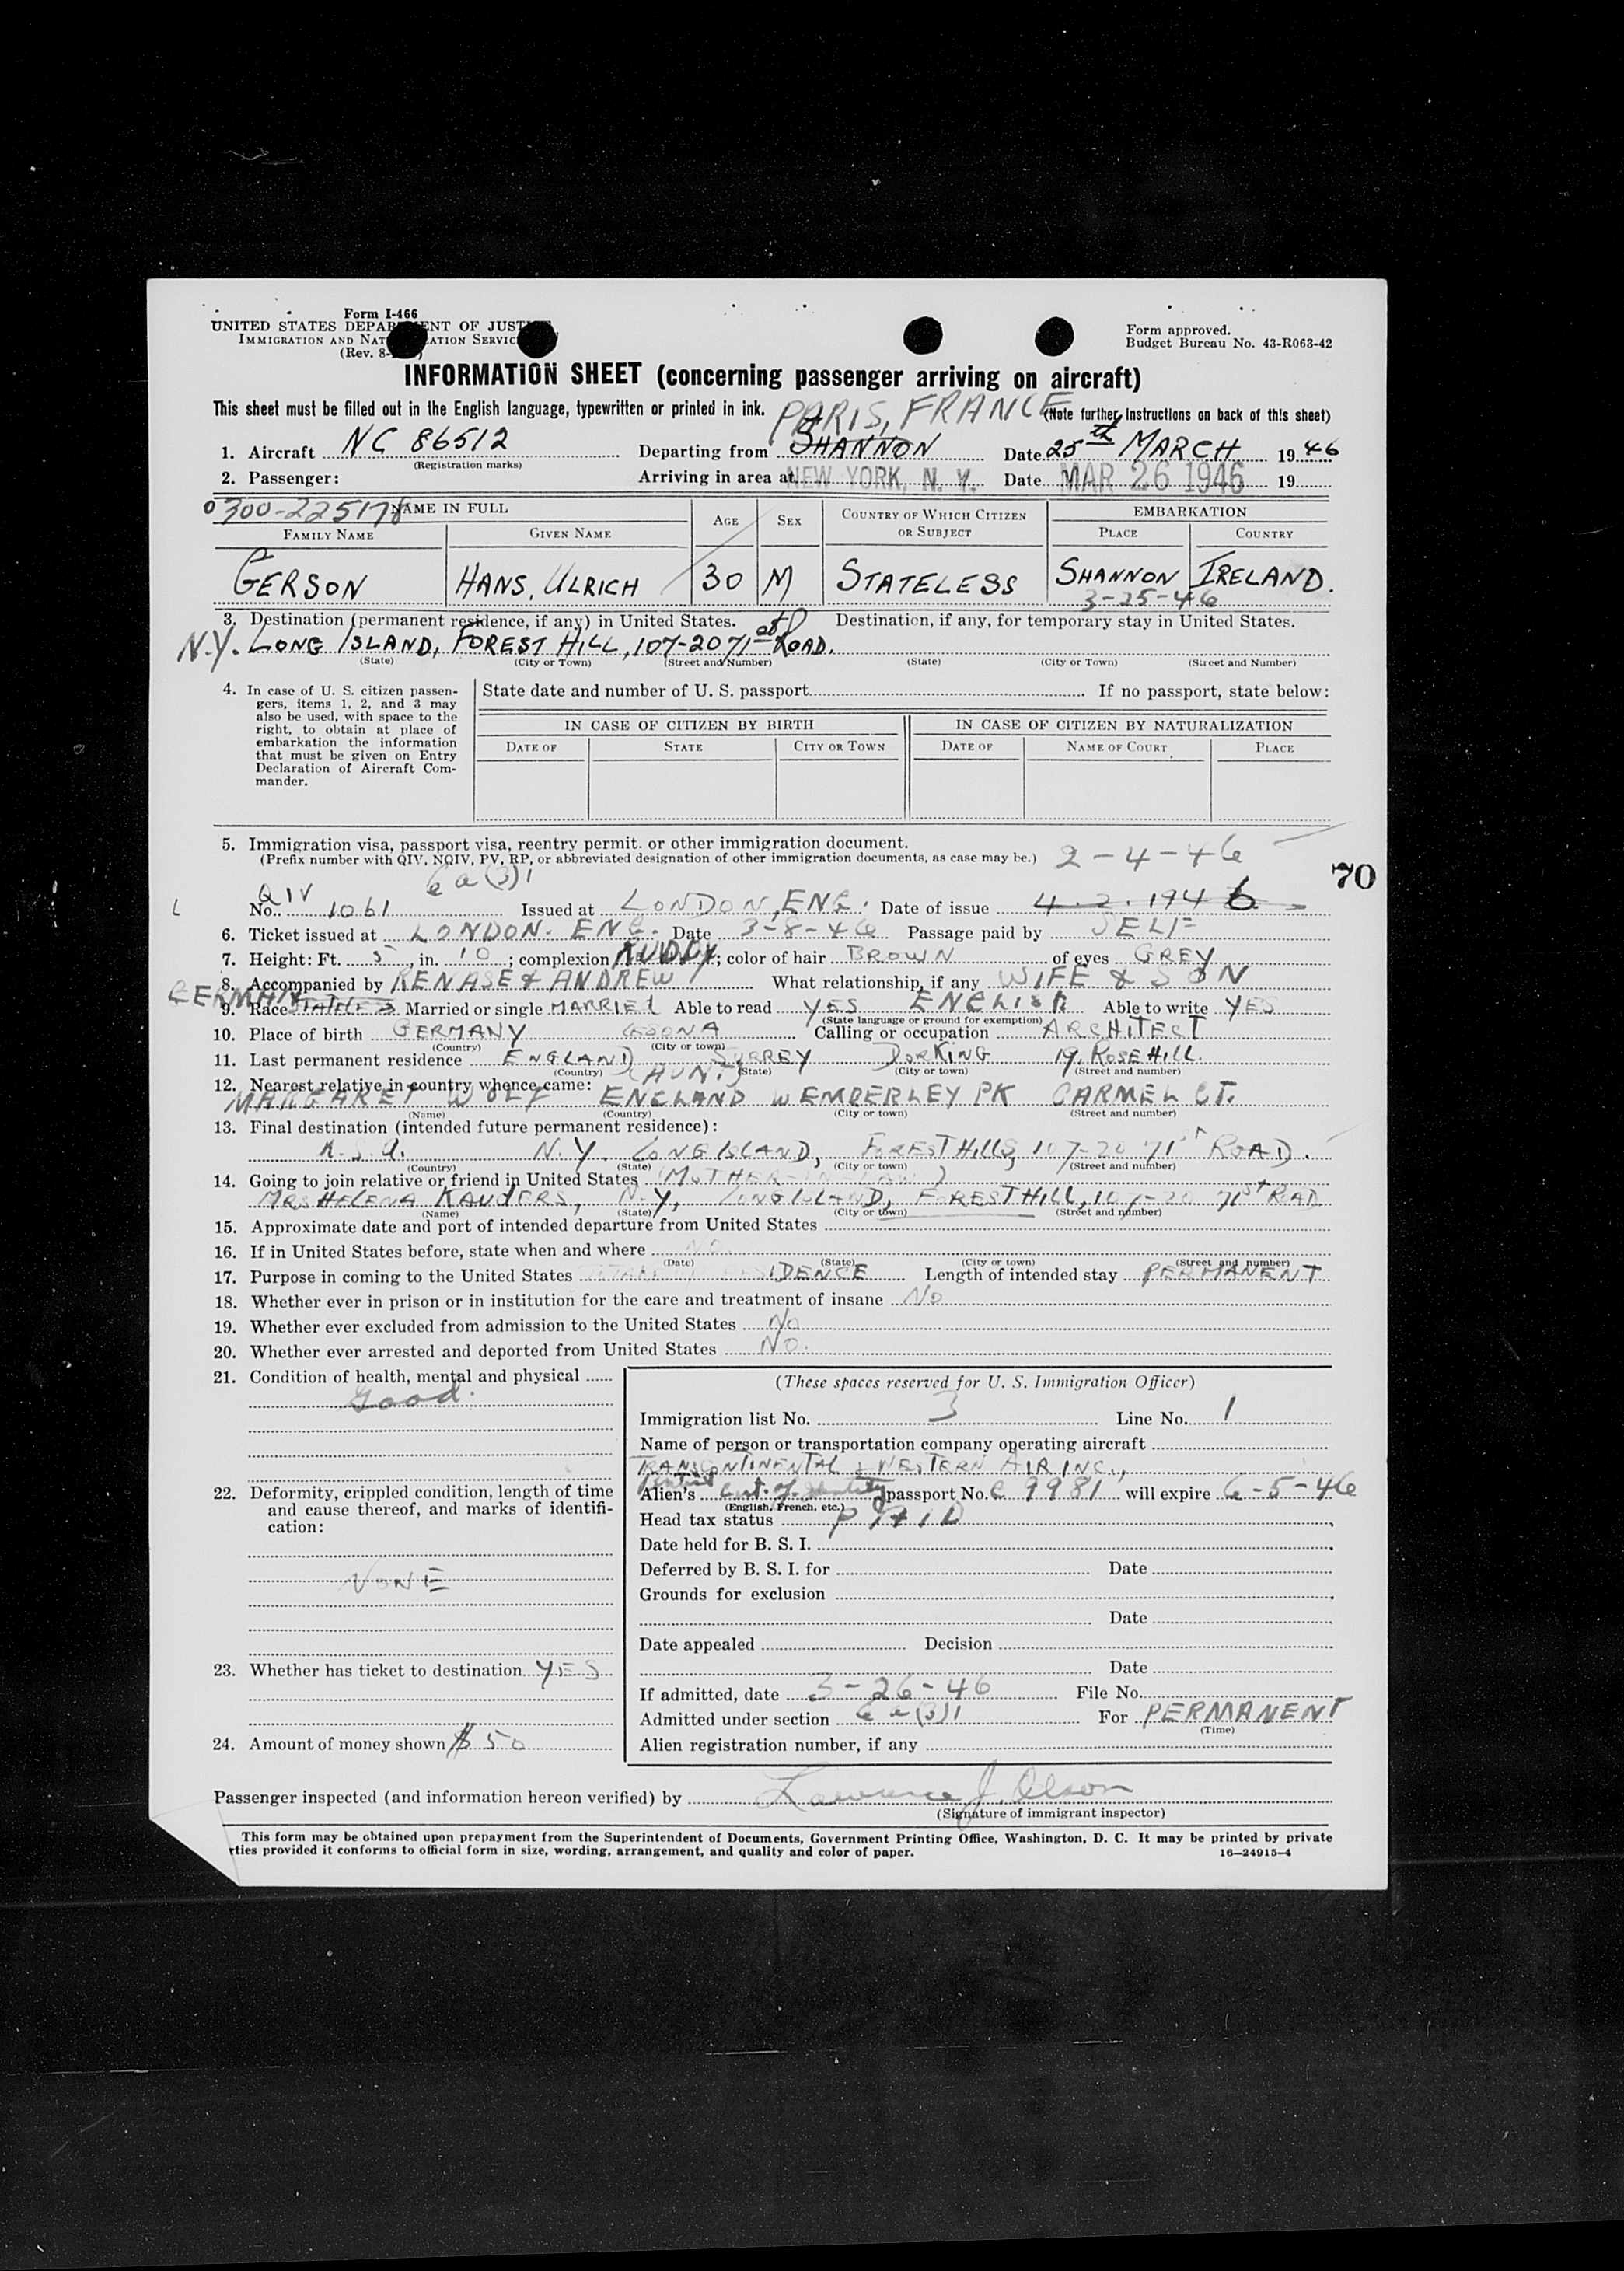 Form I-466
UNITED STATES DEPARTMENT OF JUSTICE
IMMIGRATION AND NATURALIZATION SERVICE
(Rev. 8-
Form approved.
Budget Bureau No. 43-R063-42
INFORMATION SHEET (concerning passenger arriving on aircraft)
This sheet must be filled out in the English language, typewritten or printed in ink. (Note further instructions on back of this sheet)
PARIS, FRANCE
1. Aircraft NC 86512 Departing from SHANNON Date 25th MARCH 1946
(Registration marks)
2. Passenger: Arriving in area at NEW YORK, N. Y. Date MAR 26 1946 19
0300-225178 NAME IN FULL AGE SEX COUNTRY OF WHICH CITIZEN OR SUBJECT EMBARKATION
FAMILY NAME GIVEN NAME PLACE COUNTRY
GERSON HANS, ULRICH 30 M STATELESS SHANNON IRELAND.
3-25-46
3. Destination (permanent residence, if any) in United States. Destination, if any, for temporary stay in United States.
N.Y. LONG ISLAND, FOREST HILL, 107-20 71st ROAD.
(State) (City or Town) (Street and Number) (State) (City or Town) (Street and Number)
4. In case of U. S. citizen passengers, items 1, 2, and 3 may also be used, with space to the right, to obtain at place of embarkation the information that must be given on Entry Declaration of Aircraft Commander.
State date and number of U. S. passport If no passport, state below:
IN CASE OF CITIZEN BY BIRTH IN CASE OF CITIZEN BY NATURALIZATION
DATE OF STATE CITY OR TOWN DATE OF NAME OF COURT PLACE
5. Immigration visa, passport visa, reentry permit. or other immigration document.
(Prefix number with QIV, NQIV, PV, RP, or abbreviated designation of other immigration documents, as case may be.) 2-4-46
70
QIV 6a(3)1
No. 1061 Issued at LONDON, ENG. Date of issue 4.2.1946
6. Ticket issued at LONDON. ENG. Date 3-8-46 Passage paid by SELF
7. Height: Ft. 5, in. 10; complexion RUDDY; color of hair BROWN of eyes GREY
8. Accompanied by RENASE & ANDREW What relationship, if any WIFE & SON
GERMAN
9. Race STATELESS Married or single MARRIED Able to read YES ENGLISH Able to write YES
(State language or ground for exemption)
10. Place of birth GERMANY Calling or occupation ARCHITECT
(Country) (City or town)
11. Last permanent residence ENGLAND SURREY DORKING 19, ROSE HILL.
(Country) (State) (City or town) (Street and number)
12. Nearest relative in country whence came: (AUNT)
MARGARET WOLF ENGLAND WEMBERLEY PK CARMEL CT.
(Name) (Country) (City or town) (Street and number)
13. Final destination (intended future permanent residence):
U.S.A. N.Y. LONG ISLAND, FOREST HILLS, 107-20 71st ROAD.
(Country) (State) (City or town) (Street and number)
14. Going to join relative or friend in United States (MOTHER-IN-LAW)
MRS HELENA KAUDERS, N.Y, LONG ISLAND, FOREST HILL, 107-20 71st ROAD
(Name) (State) (City or town) (Street and number)
15. Approximate date and port of intended departure from United States
16. If in United States before, state when and where NO.
(Date) (State) (City or town) (Street and number)
17. Purpose in coming to the United States RESIDENCE Length of intended stay PERMANENT
18. Whether ever in prison or in institution for the care and treatment of insane NO
19. Whether ever excluded from admission to the United States NO
20. Whether ever arrested and deported from United States NO.
21. Condition of health, mental and physical
Good.
22. Deformity, crippled condition, length of time and cause thereof, and marks of identification:
NONE
23. Whether has ticket to destination YES
24. Amount of money shown $50
(These spaces reserved for U. S. Immigration Officer)
Immigration list No. 3 Line No. 1
Name of person or transportation company operating aircraft
TRANSCONTINENTAL & WESTERN AIR INC.,
Alien's Cert. of Identity passport No. C 7981 will expire 6-5-46
(English, French, etc.)
Head tax status PAID
Date held for B. S. I.
Deferred by B. S. I. for Date
Grounds for exclusion
Date
Date appealed Decision
Date
If admitted, date 3-26-46 File No.
Admitted under section 6a(3)1 For PERMANENT
(Time)
Alien registration number, if any
Passenger inspected (and information hereon verified) by Lawrence J. Olson
(Signature of immigrant inspector)
This form may be obtained upon prepayment from the Superintendent of Documents, Government Printing Office, Washington, D. C. It may be printed by private
rties provided it conforms to official form in size, wording, arrangement, and quality and color of paper. 16—24915-4